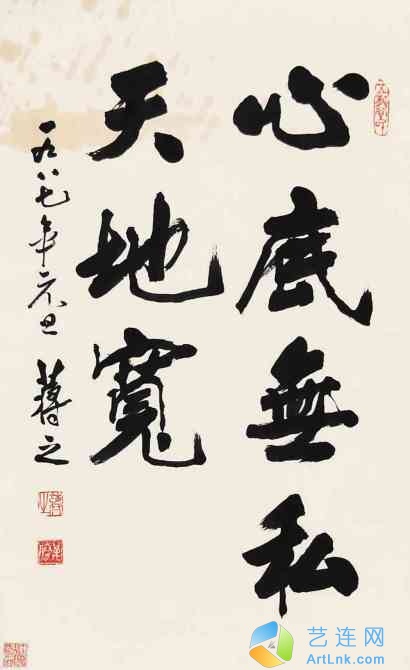 心底無私
天地寬
一九八七年元旦
艺连网
ArtLnk.com